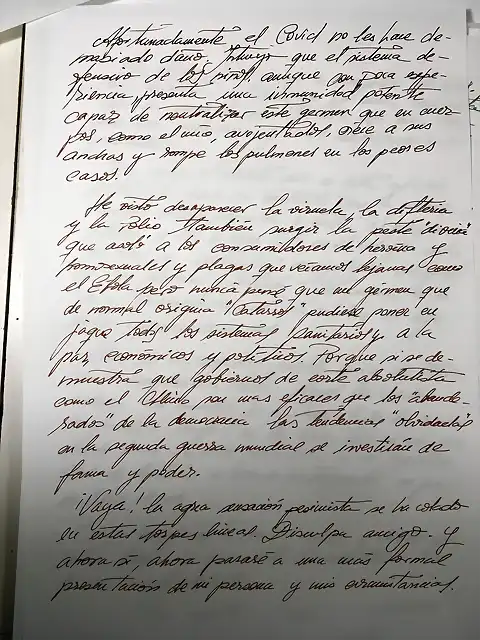 Afortunadamente el Covid no les hace de-
masiado daño. Intuyo que el sistema de-
fensivo de los niños, aunque con poca expe-
riencia, presenta una inmunidad potente
capaz de neutralizar este germen que en cuer-
pos, como el mio, avejentados, crece a sus
anchas y rompe los pulmones en los peores
casos.
He visto desaparecer la viruela, la difteria
y la Polio también surgir la peste
que a los consumidores de heroina y
homosexuales y plagas que veíamos lejanas como
el Ebola pero nunca pensé que un gérmen que
de normal origina "Catarros" pudiese poner en
jaque todos los sistemas sanitarios y, a la
par, económicos y políticos. Porque si se de-
muestra que gobiernos de corte absolutista
como el Chino son mas eficaces que los "abande-
rados" de la democracia las tendencias "olvidadas"
en la segunda guerra mundial se investirán de
forma y poder.
¡Vaya! la agua sensación pesimista se ha colado
en estas torpes lineas. Disculpa amigo. Y
ahora sí, ahora pasaré a una más formal
presentación de mi persona y mis circunstancias.